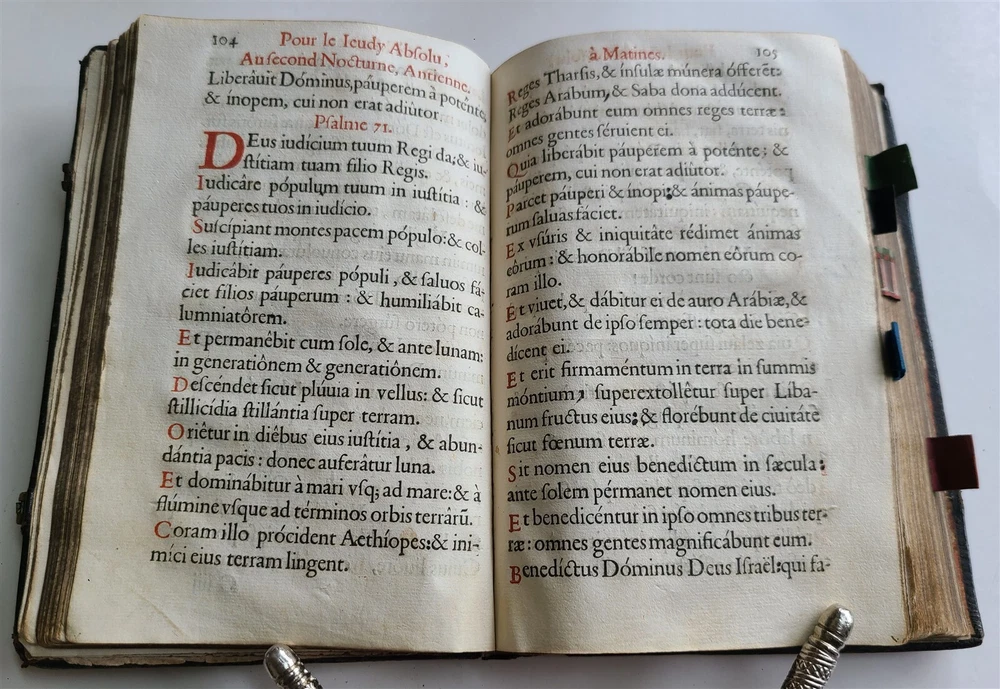 104
Pour le Ieudy Absolu,
Au second Nocturne, Antienne.
Liberâuit Dóminus, páuperem à poténte,
& ínopem, cui non erat adiûtor.
Psalme 71.
DEus iudícium tuum Regi da; & iu-
stítiam tuam filio Regis.
Iudicâre pópulum tuum in iustítia : &
páuperes tuos in iudício.
Suscípiant montes pacem pópulo: & col-
les iustítiam.
Iudicâbit páuperes pópuli, & saluos fá-
ciet filios páuperum : & humiliâbit ca-
lumniatôrem.
Et permanêbit cum sole, & ante lunam:
in generatiônem & generatiônem.
Descéndet sicut plúuia in vellus: & sicut
stillicídia stillántia super terram.
Oriêtur in diêbus eius iustítia, & abun-
dántia pacis : donec auferâtur luna.
Et dominâbitur à mari vsq; ad mare: & à
flúmine vsque ad términos orbis terrârũ.
Coram illo prócident Aethíopes: & ini-
míci eius terram lingent.
à Matines.
105
Reges Tharsis, & ínsulæ múnera ófferẽt:
Reges Arábum, & Saba dona addúcent.
Et adorábunt eum omnes reges terræ:
omnes gentes séruient ei.
Quia liberâbit páuperem à poténte ; &
páuperem, cui non erat adiûtor.
Parcet páuperi & ínopi; & ánimas páupe-
rum saluas fáciet.
Ex vsúris & iniquitáte rédimet ánimas
eôrum : & honorábile nomen eôrum co-
ram illo.
Et viuet, & dábitur ei de auro Arábiæ, &
adorábunt de ipso semper : tota die bene-
dícent ei.
Et erit firmaméntum in terra in summis
móntium, superextollêtur super Liba-
num fructus eius: & florébunt de ciuitáte
sicut fœnum terræ.
Sit nomen eius benedíctum in sæcula:
ante solem pérmanet nomen eius.
Et benedicéntur in ipso omnes tribus ter-
ræ : omnes gentes magnificábunt eum.
Benedíctus Dóminus Deus Israël: qui fa-